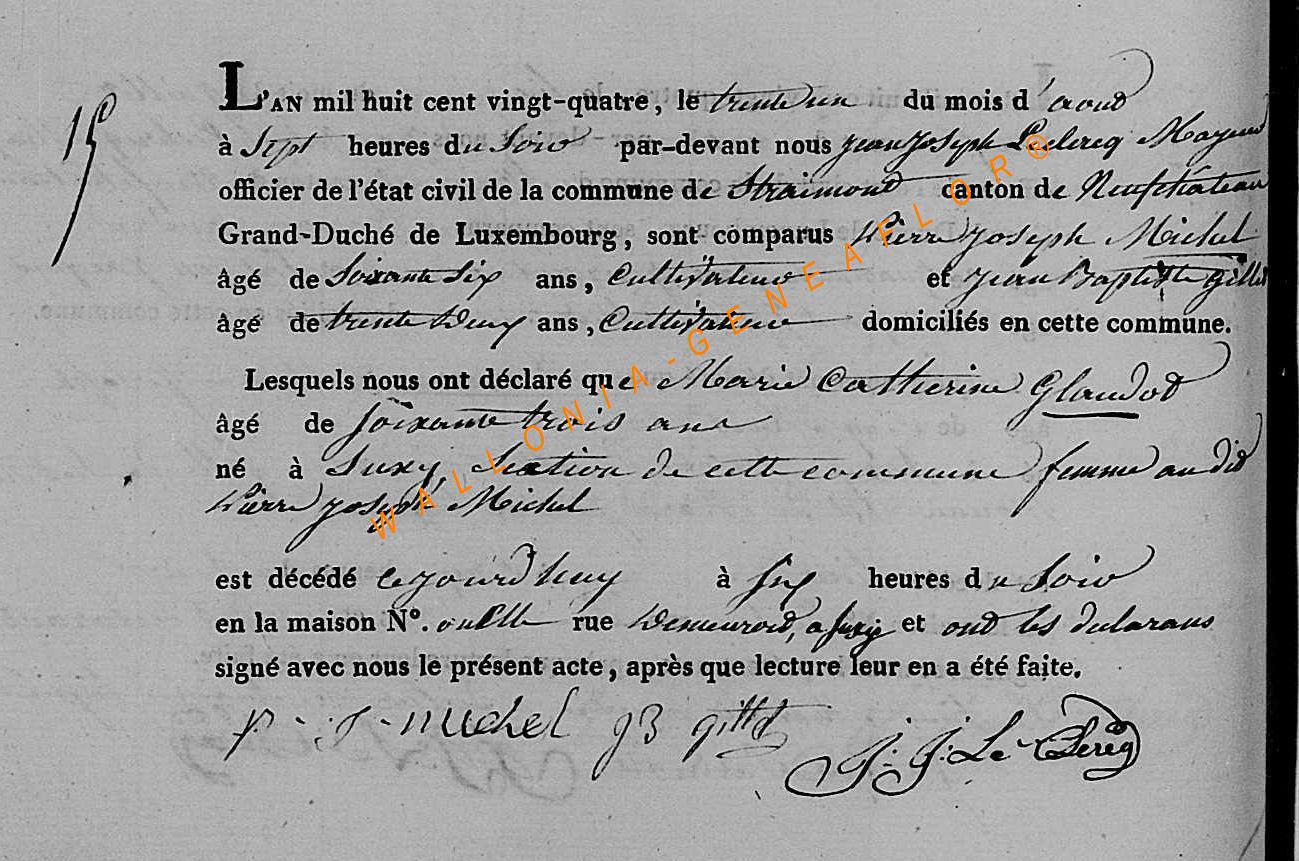 15
L'AN mil huit cent vingt-quatre, le trente un du mois d'aout
à Sept heures du Soir par-devant nous jean joseph Leclercq Mayeur
officier de l'état civil de la commune de Straimont canton de Neufchateau
Grand-Duché de Luxembourg, sont comparus Pierre joseph Michel
âgé de Soixante Six ans, Cultivateur et jean Baptiste gillet
âgé de trente deux ans, Cultivateur domiciliés en cette commune.
Lesquels nous ont déclaré que Marie Catherine Glaudot
âgé de soixante trois ans
né à Suxy Section de cette commune femme au dit
Pierre joseph Michel
est décédé cejourd'huy à six heures du Soir
en la maison N°. ou Elle rue Demeuroit, a Suxy et ont les declarans
signé avec nous le présent acte, après que lecture leur en a été faite.
p - j - michel jB gillet J: J: Le Clercq
WALLONIA-GENEAFLOR®